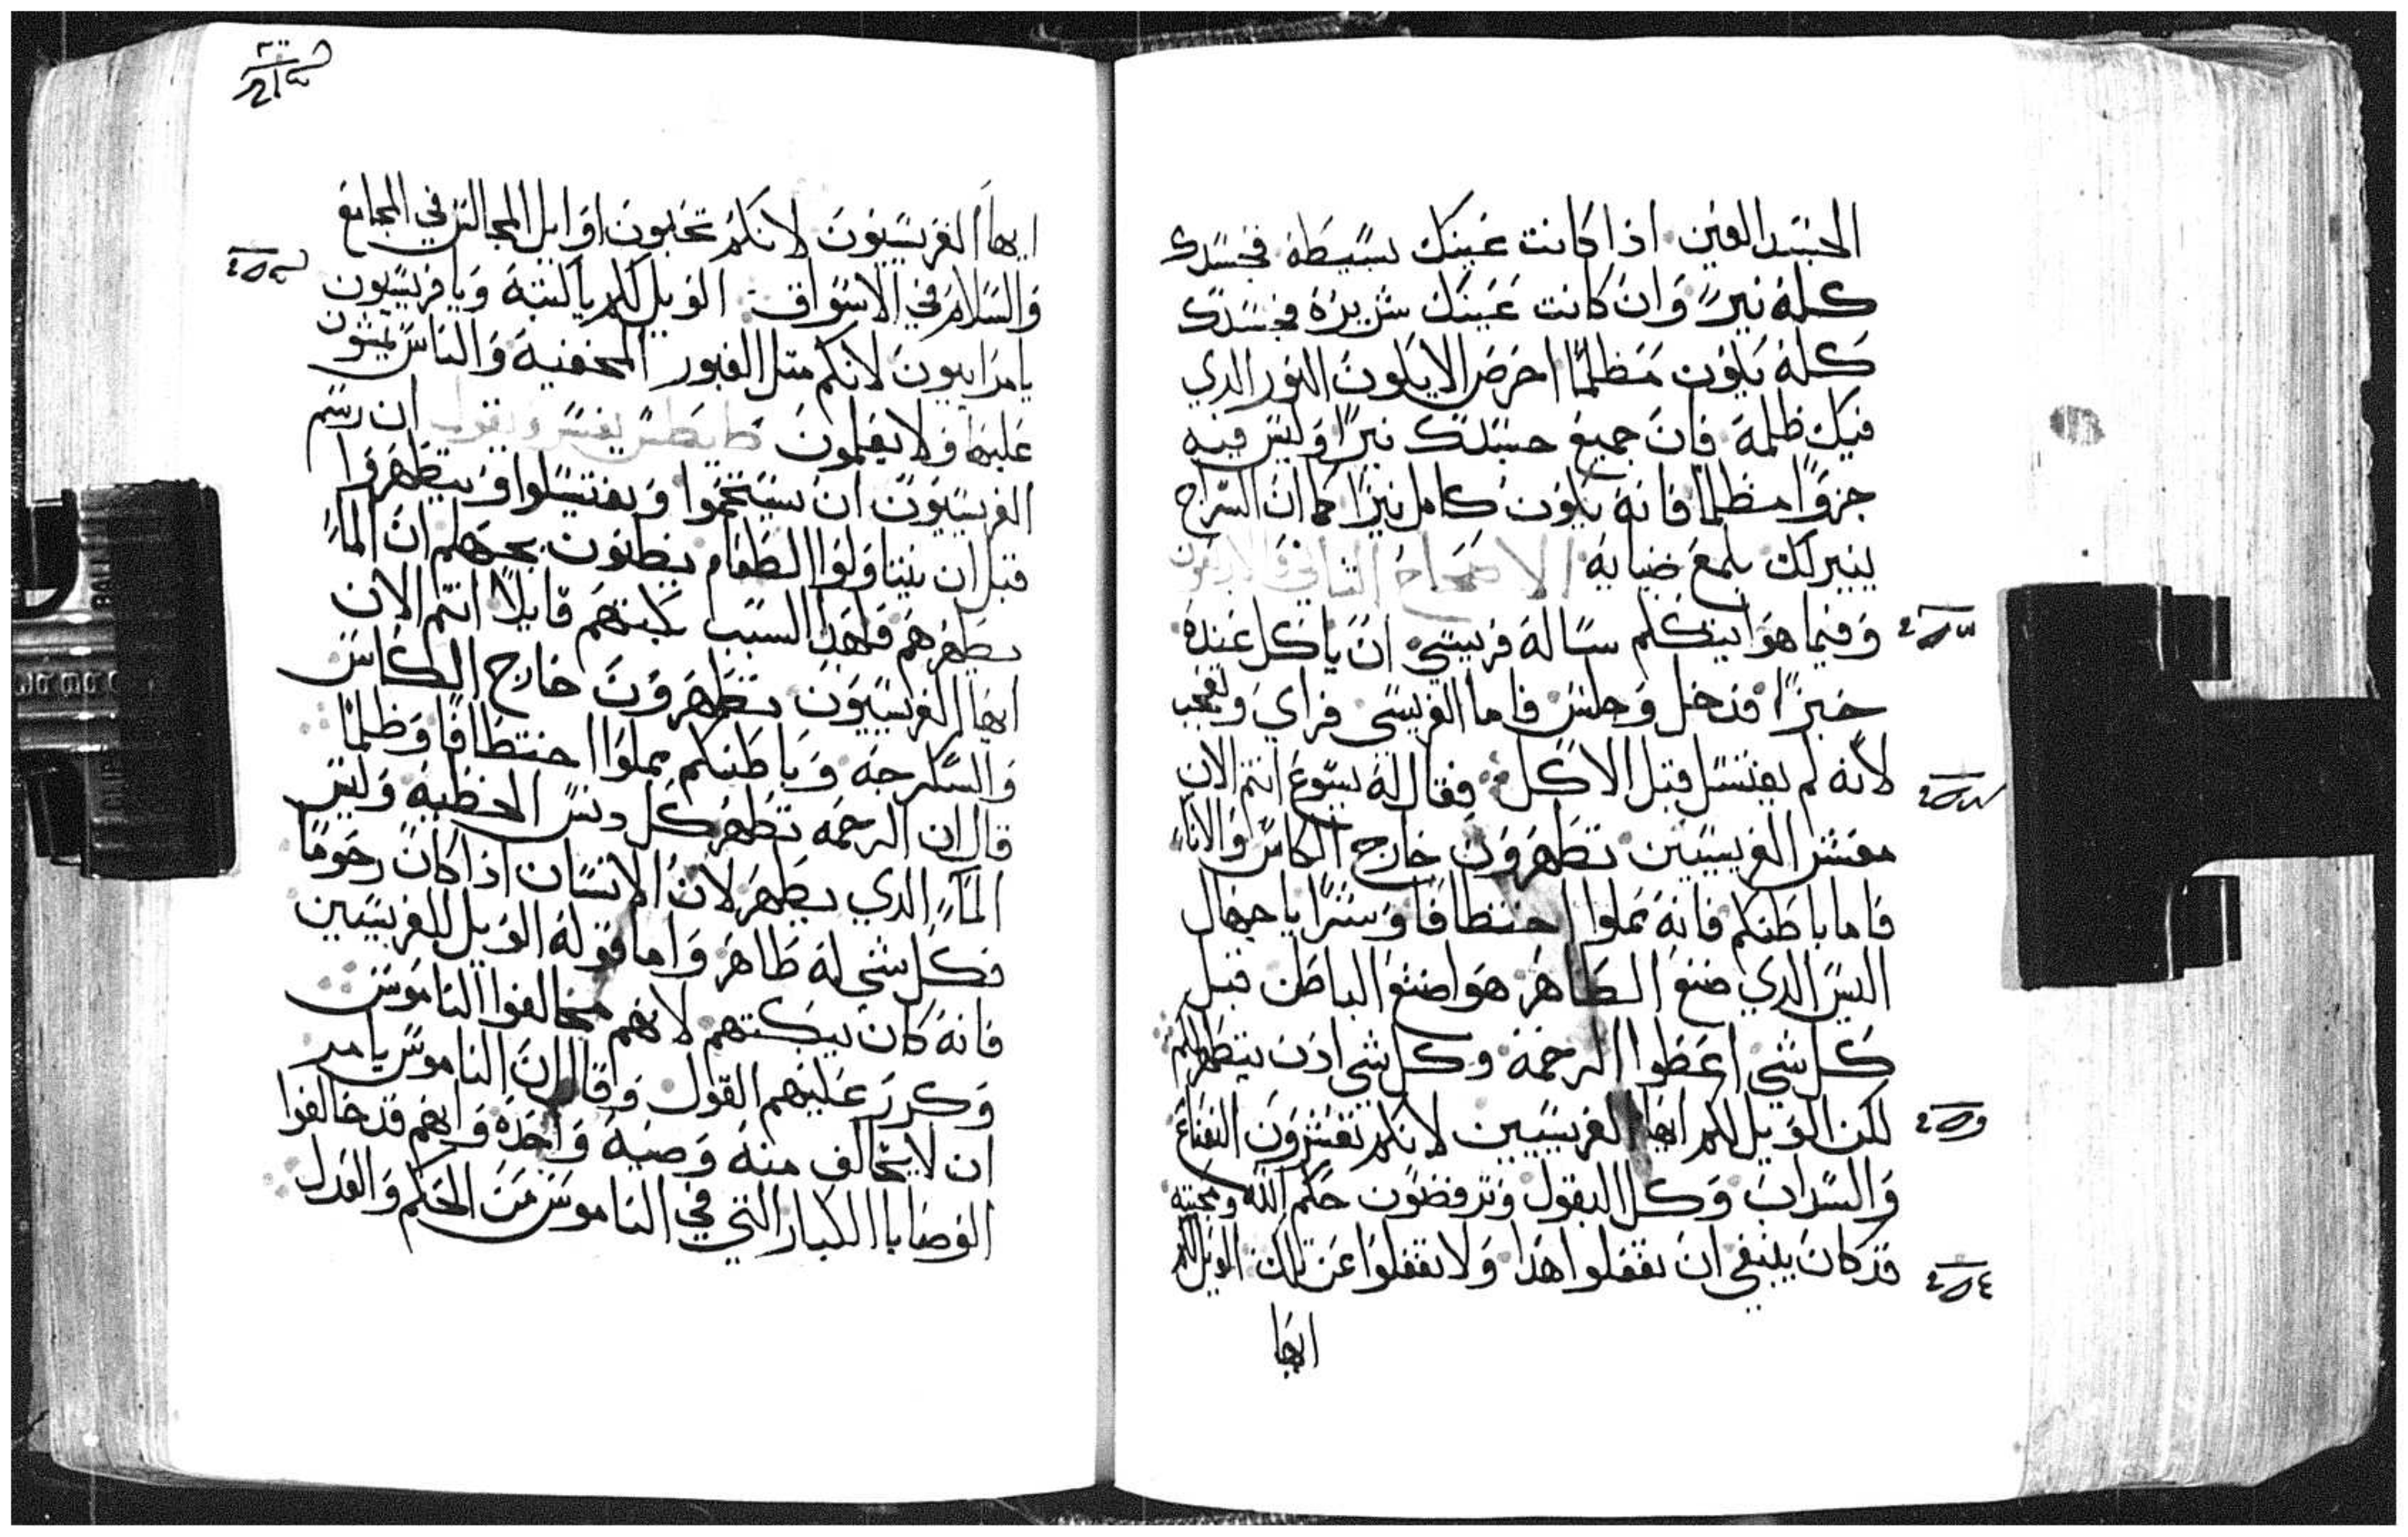 الجسد العين اذا كانت عينك بسيطه فجسدك
كله نيرً وان كانت عينك شريره فجسدك
كله يكون مظلمًا احرص الا يكون النور الدي
فيك ظلمة فان جميع جسدك نيرًا وليس فيه
جزوًا مظلمًا فانه يكون كامل نيرًا كما ان السراج
ينير لك بلمع ضيايه الاصحاح الثاني والاربعون
وفيما هو ايتكلم ساله فريسي ان ياكل عنده
خبزًا فدخل وجلس فاما الفريسي فراي وتعجب
لانه لم يغتسل قبل الاكل فقال له يسوع انتم الان
معشر الفريسيين تطهرون خارج الكاس والاناء
فاما باطنكم فانه مملوا اختطافا وشرًا يا جهال
اليس الدي صنع الظاهر هو اصنع الباطن قبل
كل شي اعطوا الرحمة وكل شي ادن يتطهرلكم
لكن الويل لكم ايها الفريسيين لانكم تعشرون النعناع
والسداب وكل البقول وترفضون حكم الله ومحبته
قد كان ينبغي ان تفعلوا هدا ولا تغفلوا عن تلك الويل لكم
ايها
ايها الفريسيون لانكم تحبون اوايل المجالس في المجامع
والسلام في الاسواق الويل لكم يا كتبة ويا فريسيون
يا مراييون لانكم متل القبور المخفيه والناس يمشون
عليها ولا يعلمون طيطس يفسر ويقول ان رسم
الفريسيون ان يستحموا ويغتسلوا ويتطهروا
قبل ان يتناولوا الطعام يظنون بجهلهم ان الماء
يطهرهم فلهدا السبب بكتهم قايلًا انتم الان
ايها الفريسيون تطهرون خارج الكاس
والسكرجه وباطنكم مملوا اختطافًا وظلمًا
قال ان الرحمه تطهر كل دنس الخطيه وليس
الماء الدي يطهر لان الانسان اذا كان رحومًا
فكل شي له طاهر واما قوله الويل للفريسيين
فانه كان يبكتهم لانهم مخالفوا الناموس
وكرر عليهم القول وقال ان الناموس يامر
ان لا يخالف منه وصية واحدة وانهم قد خالفوا
الوصايا الكبار التي في الناموس من الحكم والعدل